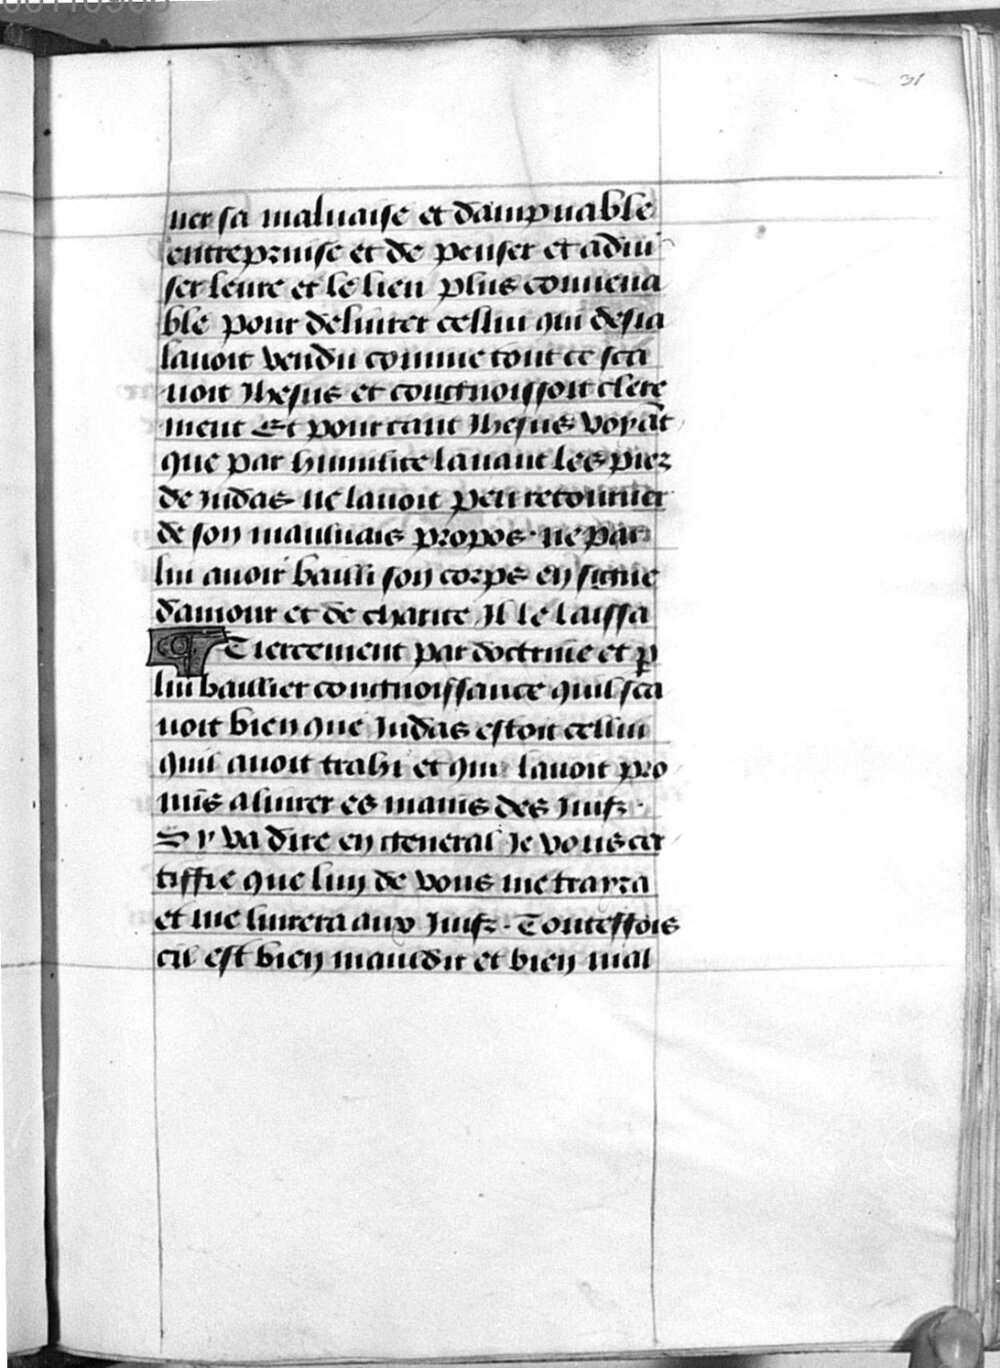 31
uer sa maluaise et dampnable
entreprinse et de penser et adui
ser leure et le lieu plus conuena
ble pour deliurer cellui qui desia
lauoit vendu comme tout ce sca
uoit Jhesus et congnoissoit clere
ment Et pourtant Jhesus voyāt
que par humilite lauant les piez
de Judas ne lauoit peu retourner
de son mauuais propos. ne par
lui auoir bailli son corps en signe
damour et de charite Il le laissa
¶ Tiercement par doctrine et ꝑ
lui baillier congnoissance quil sca
uoit bien que Judas estoit cellui
quil auoit trahi et qui lauoit pro
mis a liurer es mains des Juifz.
Sy va dire en general Je vous cer
tiffie que lun de vous me trayra
et me liurera aux Juifz. Touteffois
cil est bien maudit et bien mal